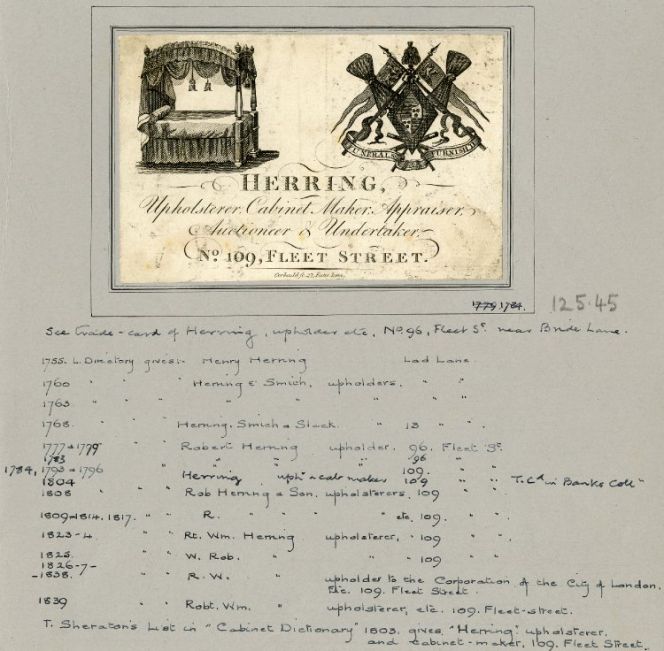 FUNERALS FURNISH'D
HERRING,
Upholsterer, Cabinet Maker, Appraiser,
Auctioneer & Undertaker,
No. 109, FLEET STREET.
1779, 1784.
125.45
See trade-card of Herring, upholder etc, No. 96, Fleet St. near Bride Lane.
1755. L. Directory gives:- Henry Herring Lad Lane.
1760 " " Herring & Smith, upholders, " "
1763 " " " " " " "
1768. " " Herring, Smith & Slack. " 13 " "
1777-1779 " " Robert Herring upholder. 96. Fleet St.
1783 " " " " 96 " "
1784, 1793-1796 " " Herring uph & cab maker 109. " "
1804 109 " " T. Cd in Banks Coll
1808 " " Rob Herring & Son, upholsterers, 109 " "
1809-1814. 1817. " " R. " " " etc. 109. " "
1823-4 " " Rt. Wm. Herring upholsterer, 109 " "
1825. " " W. Rob. " " 109 " "
1826-7-
-1838. " " R. W. " upholder to the Corporation of the City of London.
Etc. 109. Fleet Street.
1839 " " Robt. Wm. " upholsterer, etc. 109. Fleet-street.
T. Sheraton's List in "Cabinet Dictionary" 1803. gives "Herring" upholsterer.
and cabinet-maker, 109. Fleet Street.